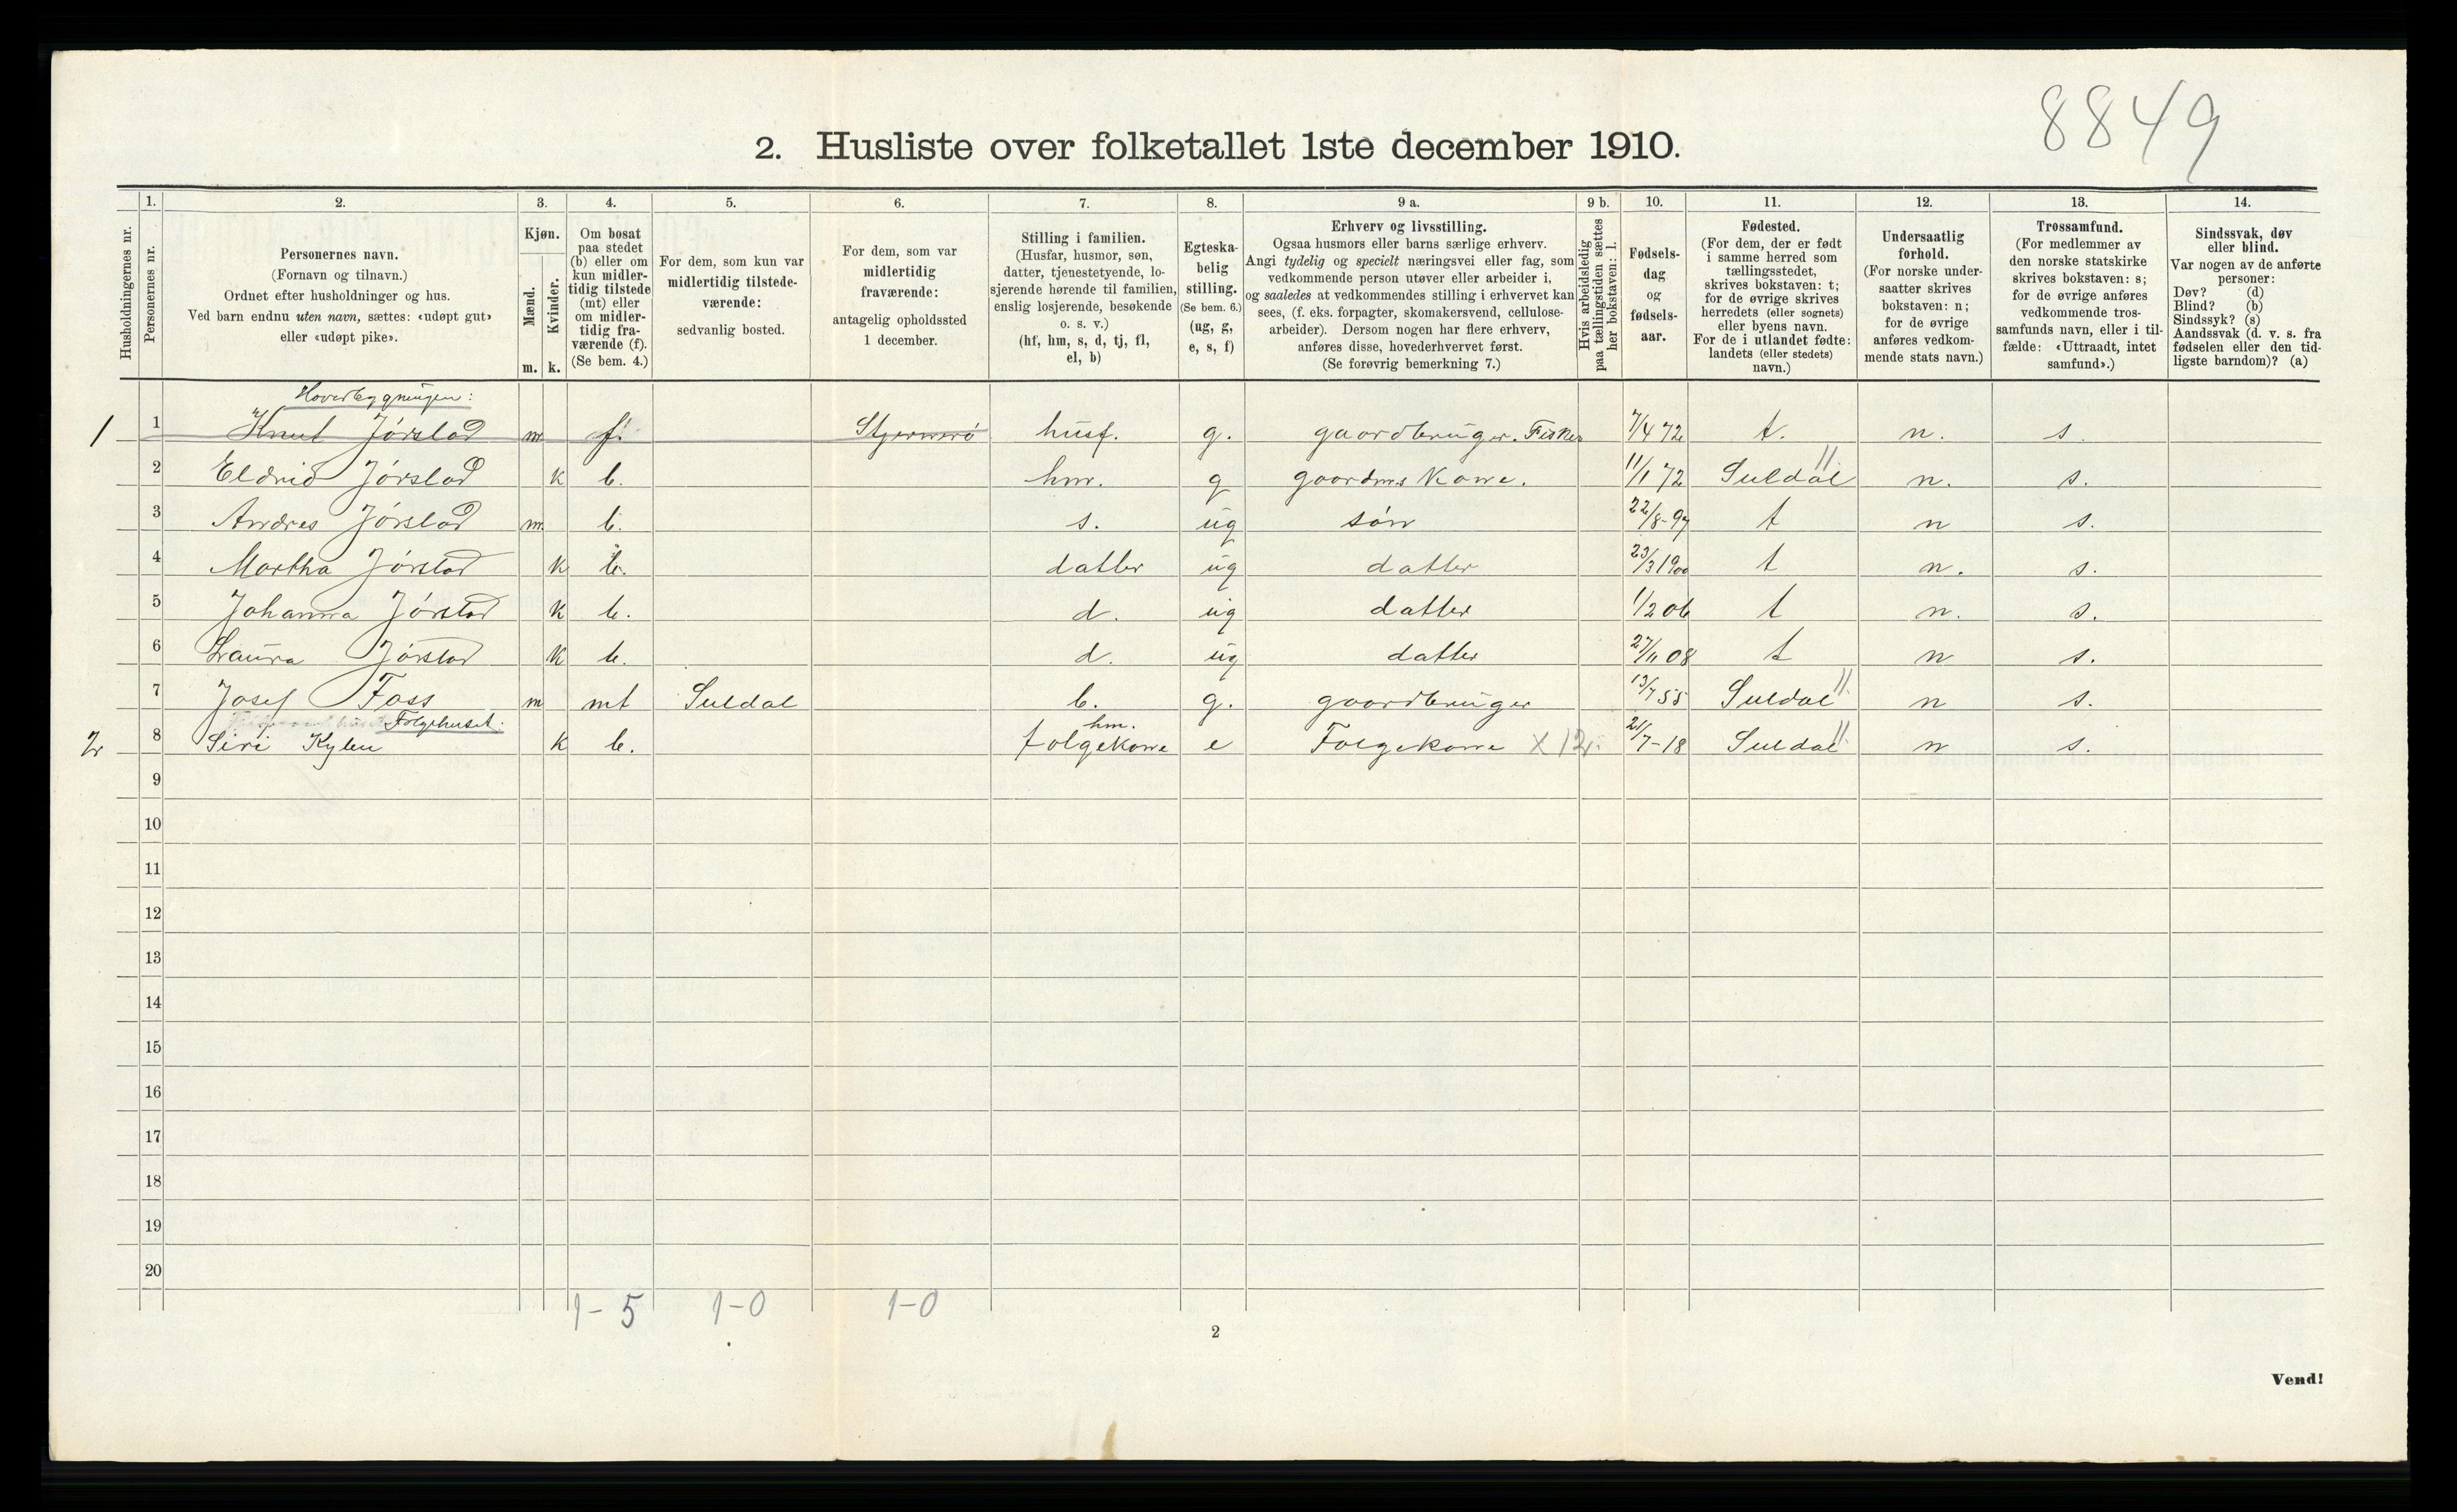 8849
2. Husliste over folketallet 1ste december 1910.
Husholdningernes nr.
1. Personernes nr.
2. Personernes navn. (Fornavn og tilnavn.) Ordnet efter husholdninger og hus. Ved barn endnu uten navn, sættes: «udøpt gut» eller «udøpt pike».
3. Kjøn. Mænd. m. Kvinder. k.
4. Om bosat paa stedet (b) eller om kun midler-tidig tilstede (mt) eller om midler-tidig fra-værende (f). (Se bem. 4.)
5. For dem, som kun var midlertidig tilstede-værende: sedvanlig bosted.
6. For dem, som var midlertidig fraværende: antagelig opholdssted 1 december.
7. Stilling i familien. (Husfar, husmor, søn, datter, tjenestetyende, lo-sjerende hørende til familien, enslig losjerende, besøkende o. s. v.) (hf, hm, s, d, tj, fl, el, b)
8. Egteska-belig stilling. (Se bem. 6.) (ug, g, e, s, f)
9 a. Erhverv og livsstilling. Ogsaa husmors eller barns særlige erhverv. Angi tydelig og specielt næringsvei eller fag, som vedkommende person utøver eller arbeider i, og saaledes at vedkommendes stilling i erhvervet kan sees, (f. eks. forpagter, skomakersvend, cellulose-arbeider). Dersom nogen har flere erhverv, anføres disse, hovederhvervet først. (Se forøvrig bemerkning 7.)
9 b. Hvis arbeidsledig paa tællingstiden sættes her bokstaven: l.
10. Fødsels-dag og fødsels-aar.
11. Fødested. (For dem, der er født i samme herred som tællingsstedet, skrives bokstaven: t; for de øvrige skrives herredets (eller sognets) eller byens navn. For de i utlandet fødte: landets (eller stedets) navn.)
12. Undersaatlig forhold. (For norske under-saatter skrives bokstaven: n; for de øvrige anføres vedkom-mende stats navn.)
13. Trossamfund. (For medlemmer av den norske statskirke skrives bokstaven: s; for de øvrige anføres vedkommende tros-samfunds navn, eller i til-fælde: «Uttraadt, intet samfund».)
14. Sindssvak, døv eller blind. Var nogen av de anførte personer: Døv? (d) Blind? (b) Sindssyk? (s) Aandssvak (d. v. s. fra fødselen eller den tid-ligste barndom)? (a)
Hovedbygningen:
1 1 Knut Jørstad m f. Stjernerö husf. g. gaardbruger. Fisker 7/4 72 t. n. s.
2 Eldrid Jørstad K b. hm. g gaardms Kone. 11/1 72 Suldal 11 n. s.
3 Andres Jørstad m b. s. ug søn 22/8-97 t n s.
4 Martha Jørstad K b. datter ug datter 23/3 1900 t n. s.
5 Johanna Jørstad K b. d. ug datter 1/2 06 t n. s.
6 Laura Jørstad K b. d. ug datter 27/11 08 t n s.
7 Josef Foss m mt Suldal b. g. gaardbruger 13/7 55 Suldal 11 n s.
Følgehuset: hm.
2 8 Siri Kylen K b. følgekone e Følgekone X 12. 21/7-18 Suldal 11 n s.
9
10
11
12
13
14
15
16
17
18
19
20
1-5 1-0 1-0
2
Vend!